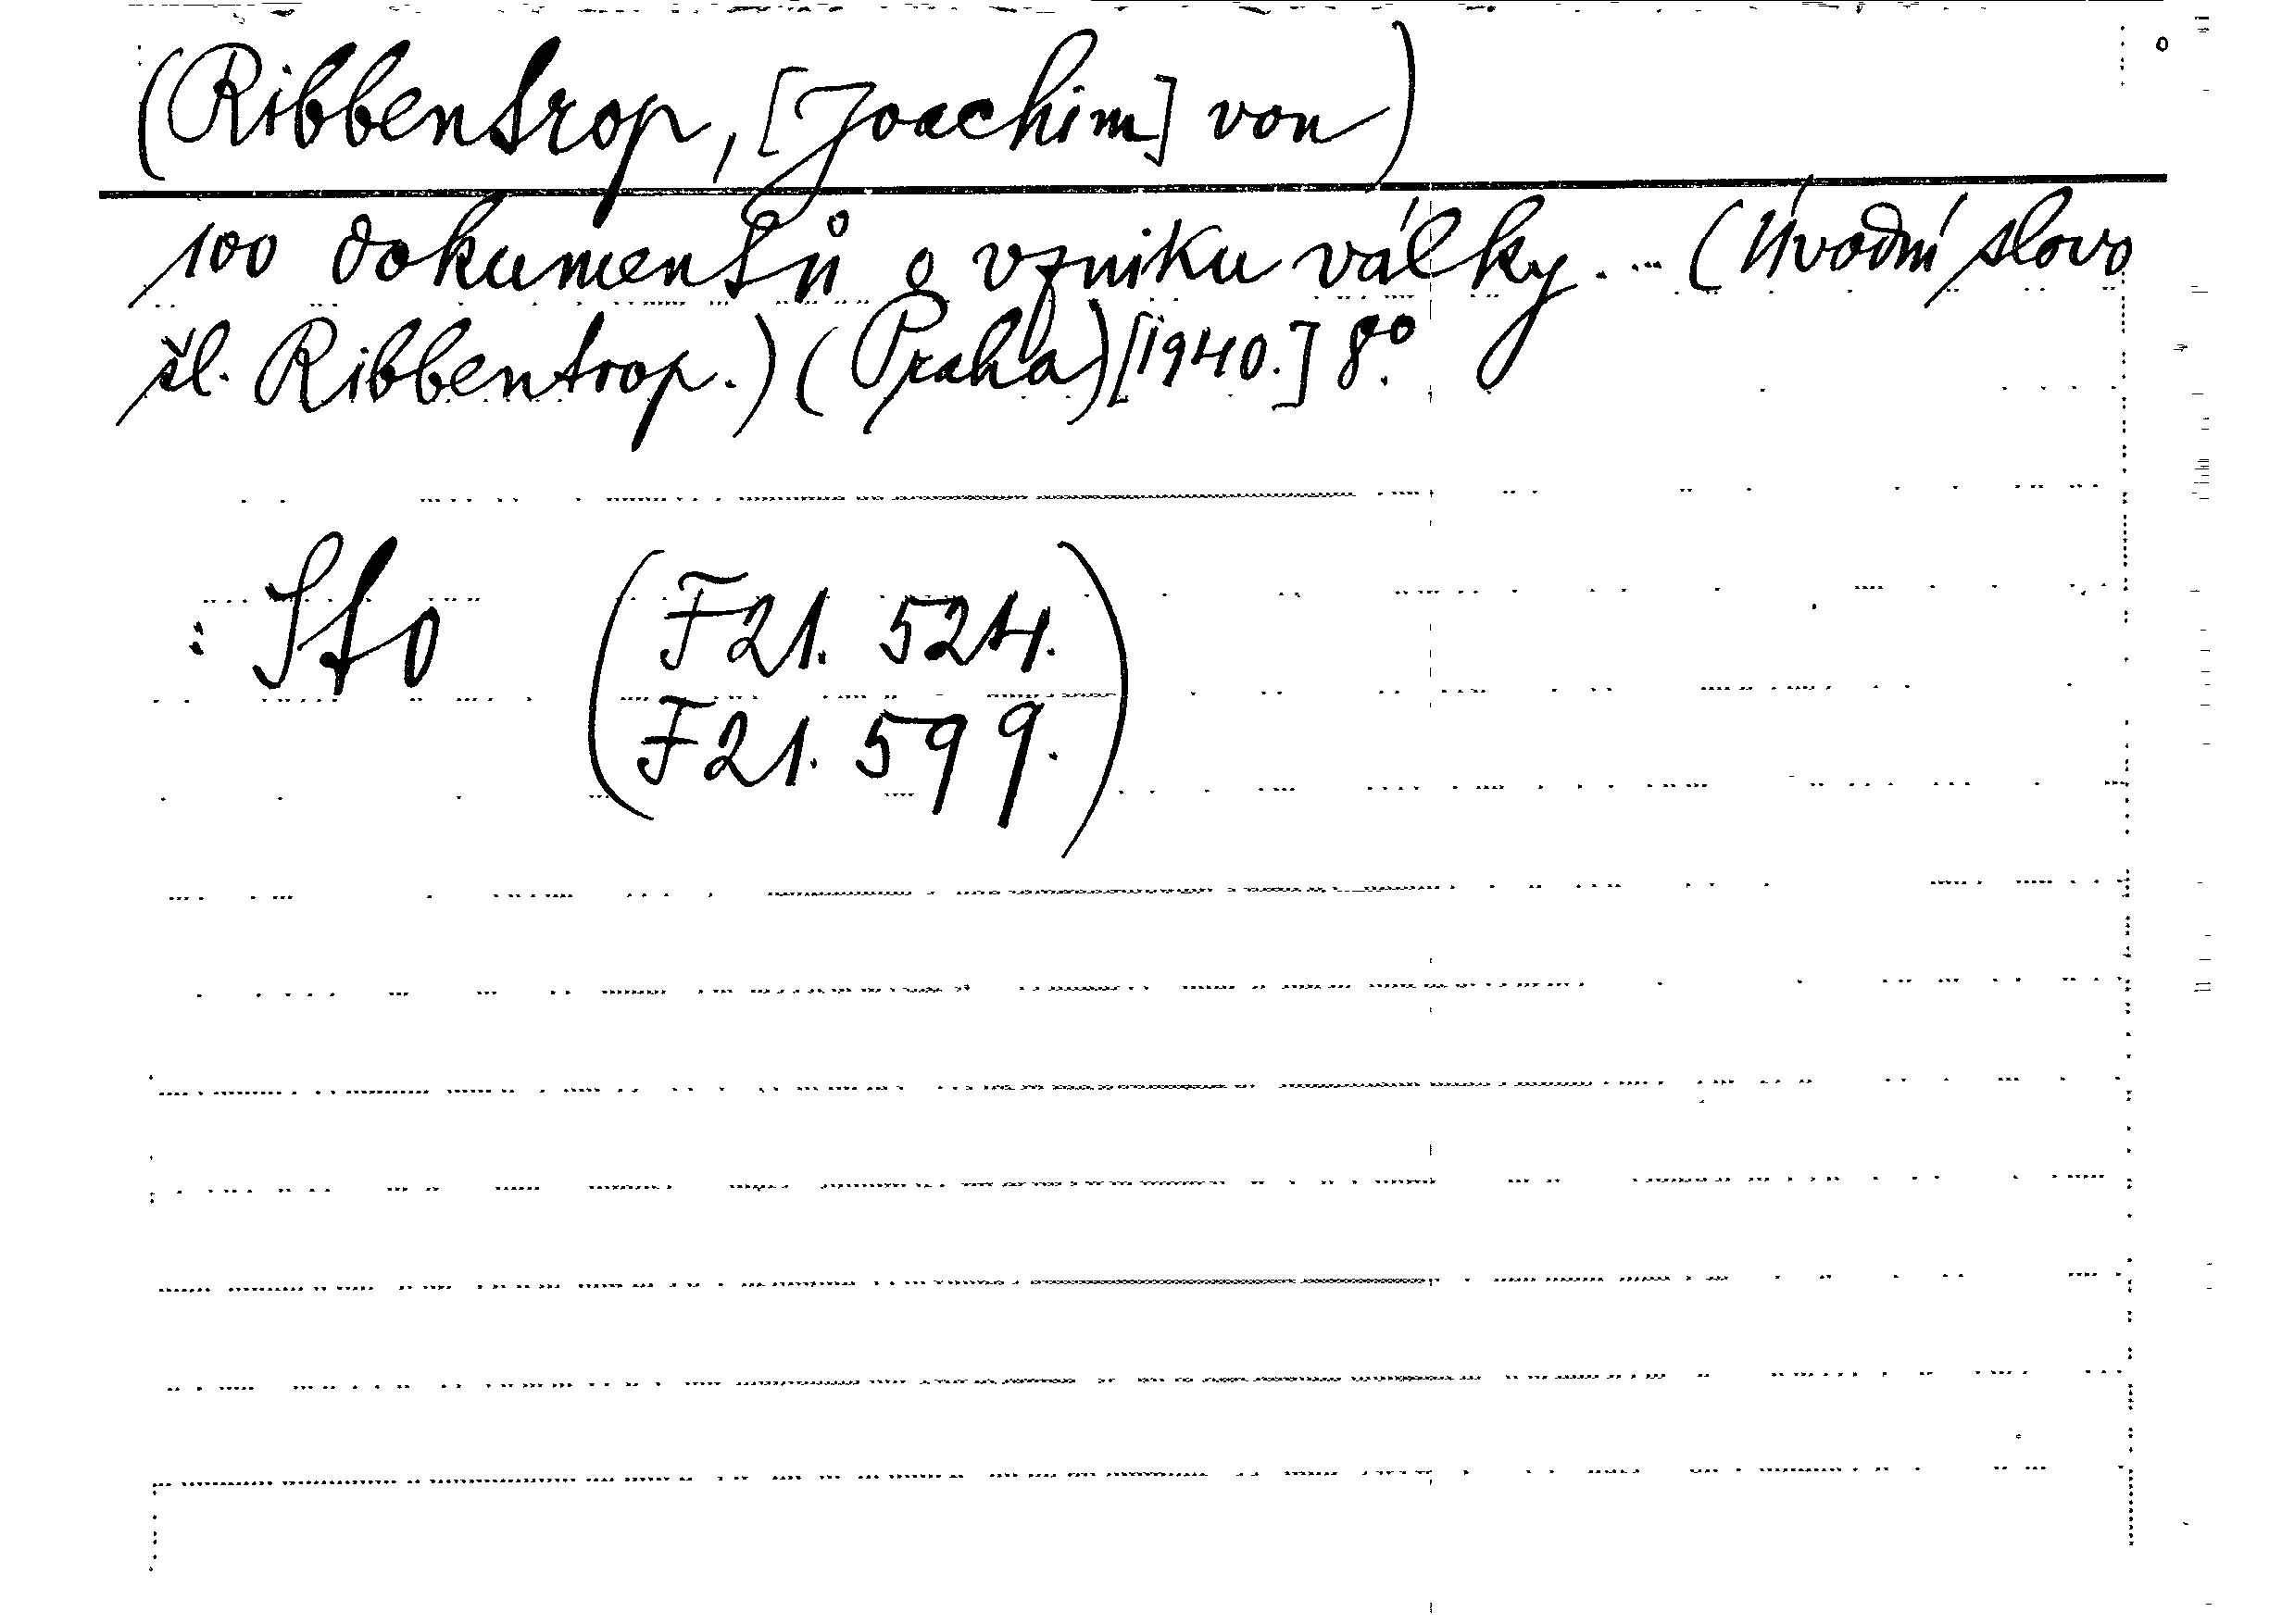 (Ribbentrop, [Joachim] von)
100 dokumentů o vzniku války. ... (Úvodní slovo
šl. Ribbentrop.) (Praha) [1940.] 8°.
: Sto
(F21. 524.
F21. 599.)